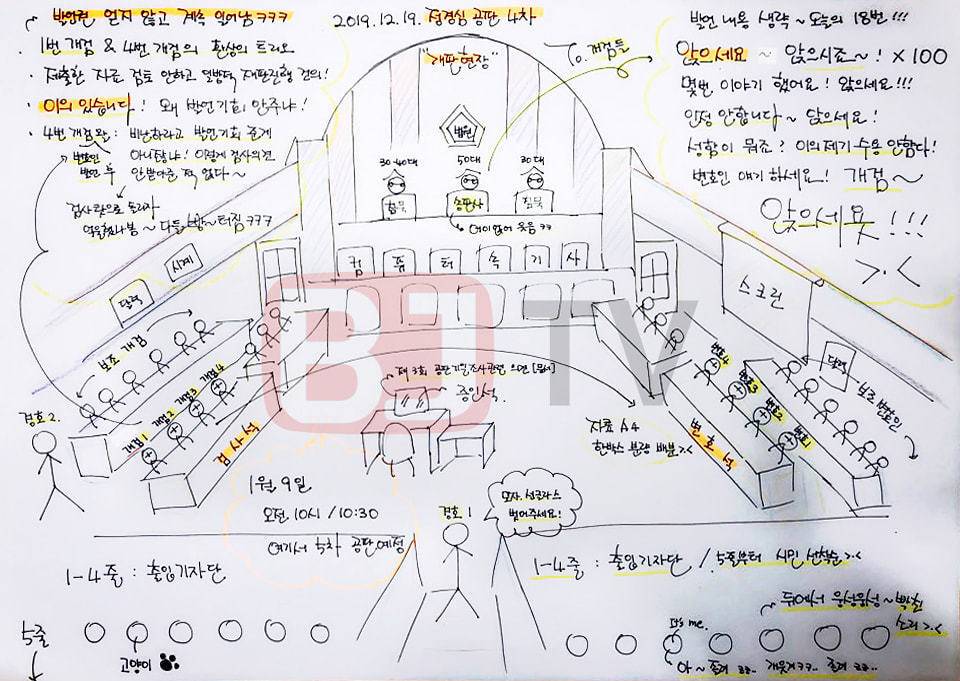 발언권 얻지 않고 계속 일어남 ㅋㅋㅋ
· 1번 개검 & 4번 개검의 환상의 트리오
· 제출한 자료 검토 안하고 일방적 재판진행 건의!
· 이의 있습니다! 왜 발언기회 안주냐!
· 4번 개검왈: 비난하라고 발언기회 준게
변호인
발언 후
아니잖냐! 이렇게 검사의견
안받아준 적 없다~
억울했나봄 ~ 다들 빵~터짐 ㅋㅋㅋ
2019.12.19. 정경심 공판 4차
"개판현장"
To. 개검들
발언 내용 생략 ~ 오늘의 18번!!!
앉으세요 ~ 앉으시죠~! ×100
몇번 이야기 했어요! 앉으세요!!!
인정 안합니다~ 앉으세요!
성함이 뭐죠? 이의제기 수용 안함다!
변호인 얘기 하세요! 개검~
앉으세욧!!!
>.<
법원
30-40대
50대
30대
송판사
어이없어 웃음 ㅋㅋ
컴 퓨 터 속 기 사
시계
달력
스크린
달력
보조 개검
개검1
개검2
개검3
개검4
검사석
경호2.
제 3회 공판기일조사관련 의견
증인석.
자료 A4
한박스 분량 배분 >.<
변호4
변호3
변호2
변호1
보조 변호인
변호석
1월 9일
오전 10시 / 10:30
여기서 5차 공판예정
경호 1
모자, 선글라스
벗어주세요!
1-4줄 : 출입기자단
1-4줄 : 출입기자단 / 5줄부터 시민 선착순 >.<
뒤에서 웅성웅성~ 빡친
소리 >.<
5줄
고양이
It's me.
아~ 졸려
개웃겨ㅋㅋ..
졸려
BJ TV